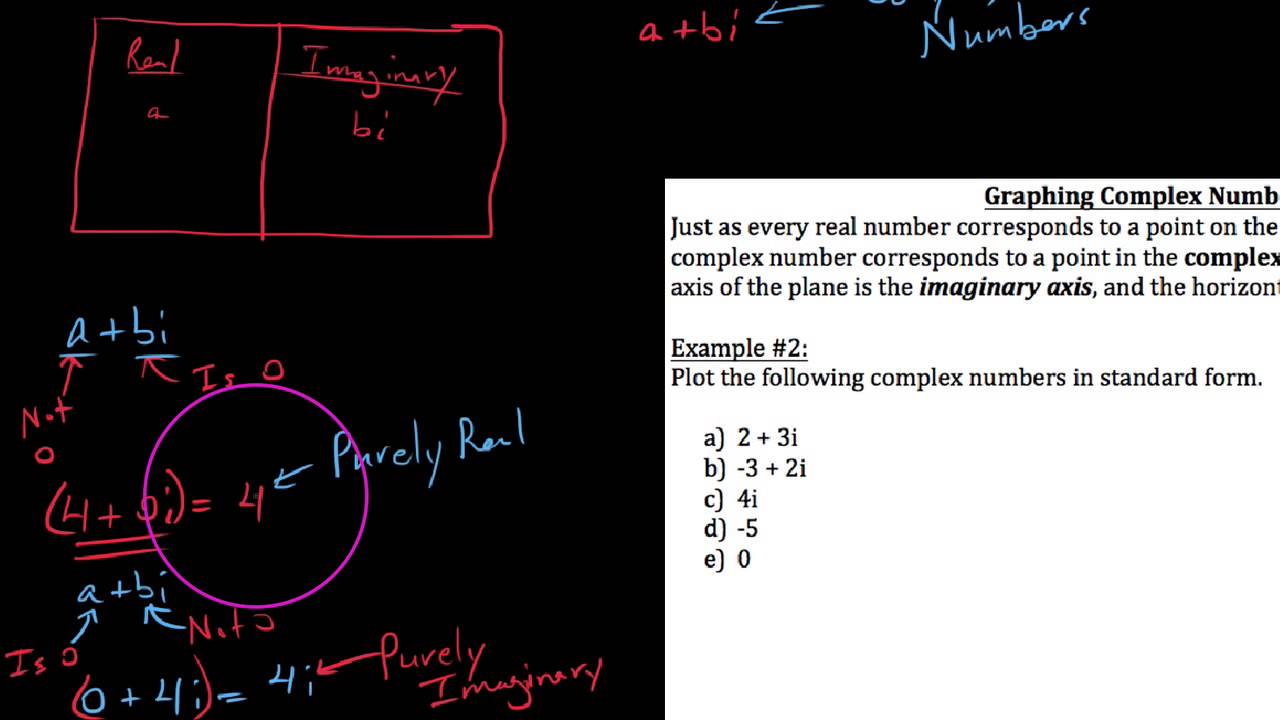 Real
a
Imaginary
bi
a + bi
Numbers
a + bi
Is 0
Not
0
Purely Real
(4 + 0i) = 4
a + bi
Not 0
Is 0
Purely
Imaginary
(0 + 4i) = 4i
Graphing Complex Numb
Just as every real number corresponds to a point on the
complex number corresponds to a point in the complex
axis of the plane is the imaginary axis, and the horizont
Example #2:
Plot the following complex numbers in standard form.
a) 2 + 3i
b) -3 + 2i
c) 4i
d) -5
e) 0